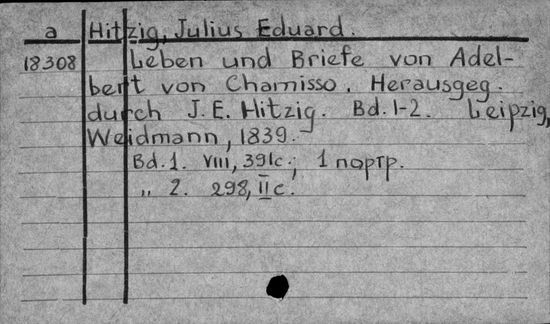 a Hitzig, Julius Eduard.
18308 Leben und Briefe von Adel-
bert von Chamisso. Herausgeg.
durch J. E. Hitzig. Bd. 1-2. Leipzig,
Weidmann, 1839.-
Bd. 1. VIII, 391c.; 1 портр.
„ 2. 298, II c.